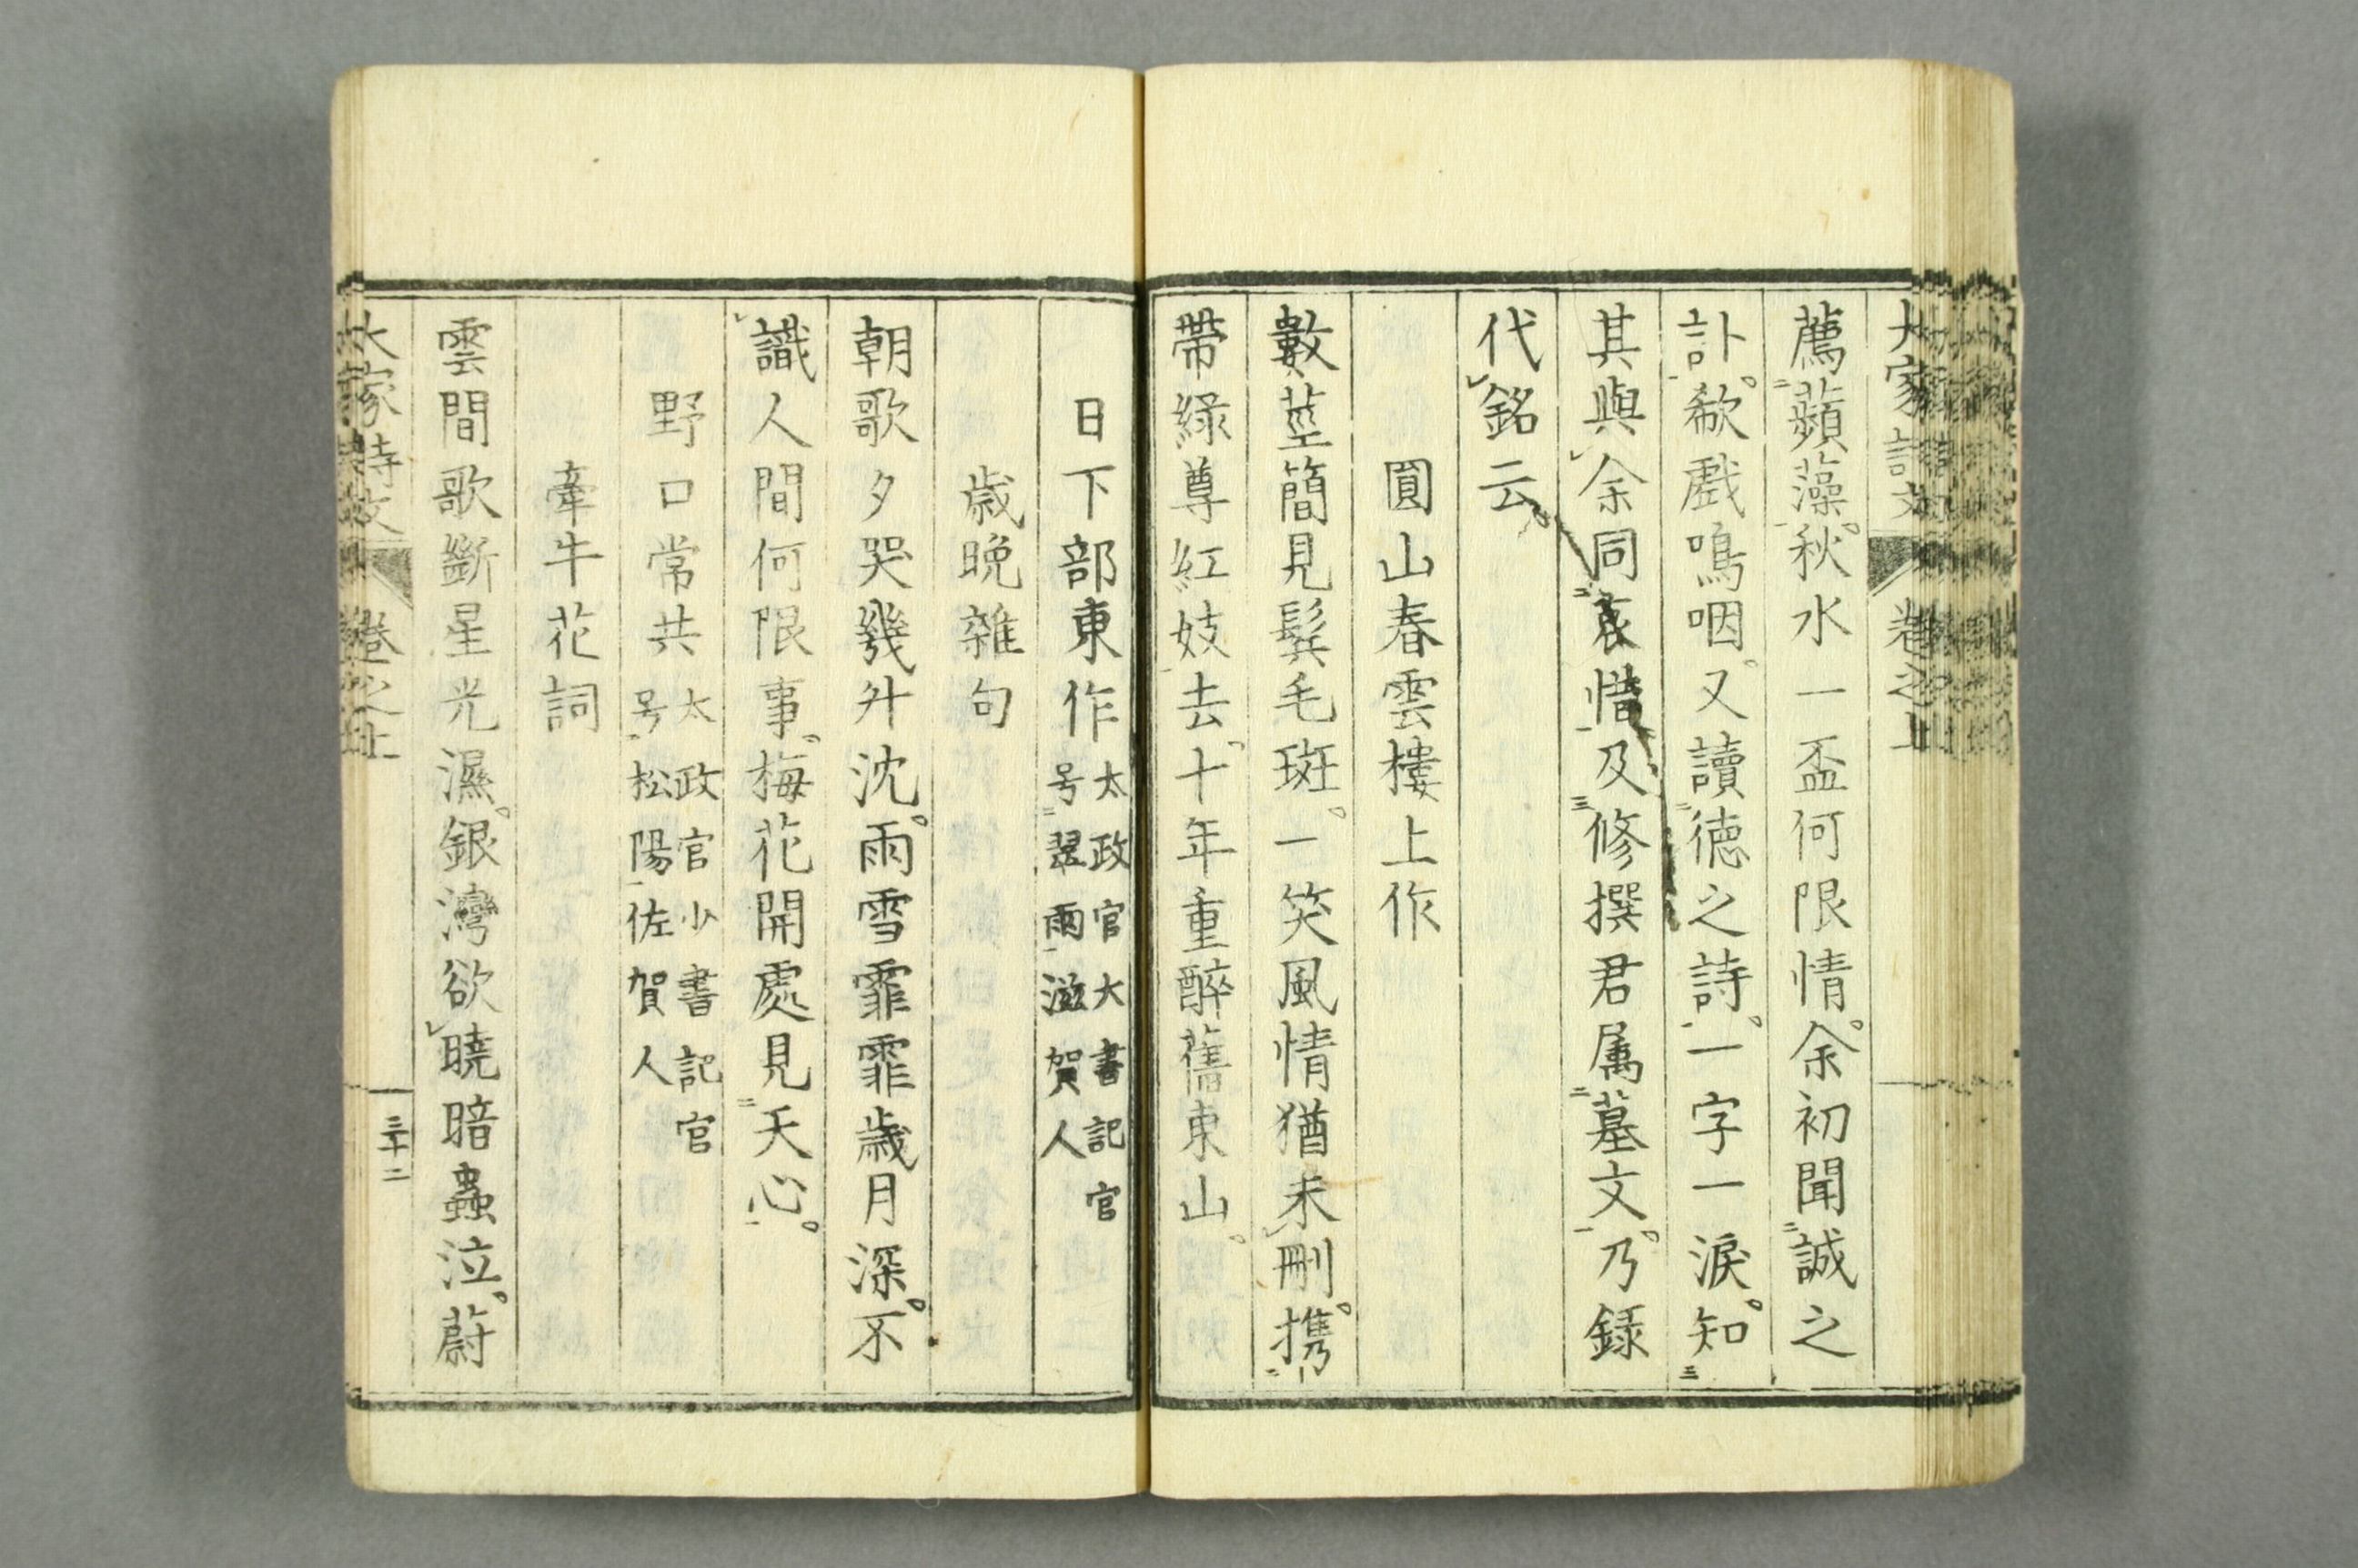 大家詩文 卷之上
薦蘋藻。秋水一盃何限情。余初聞誠之
訃。欷戲鳴咽。又讀德之詩。一字一淚。知
其與余同哀惜。及修撰君属墓文。乃錄
代銘云。
圓山春雲樓上作
數莖簡見鬂毛斑。一笑風情猶未刪。携
帶綠尊紅妓去。十年重醉舊東山。
日下部東作 太政官大書記官
号翠雨滋賀人
歳晩雜句
朝歌夕哭幾升沈。雨雪霏霏歳月深。不
識人間何限事。梅花開處見天心。
野口常共 太政官少書記官
号松陽佐賀人
牽牛花詞
雲間歌斷星光濕。銀灣欲曉暗蟲泣。蔚
大家詩文 卷之上 三十二